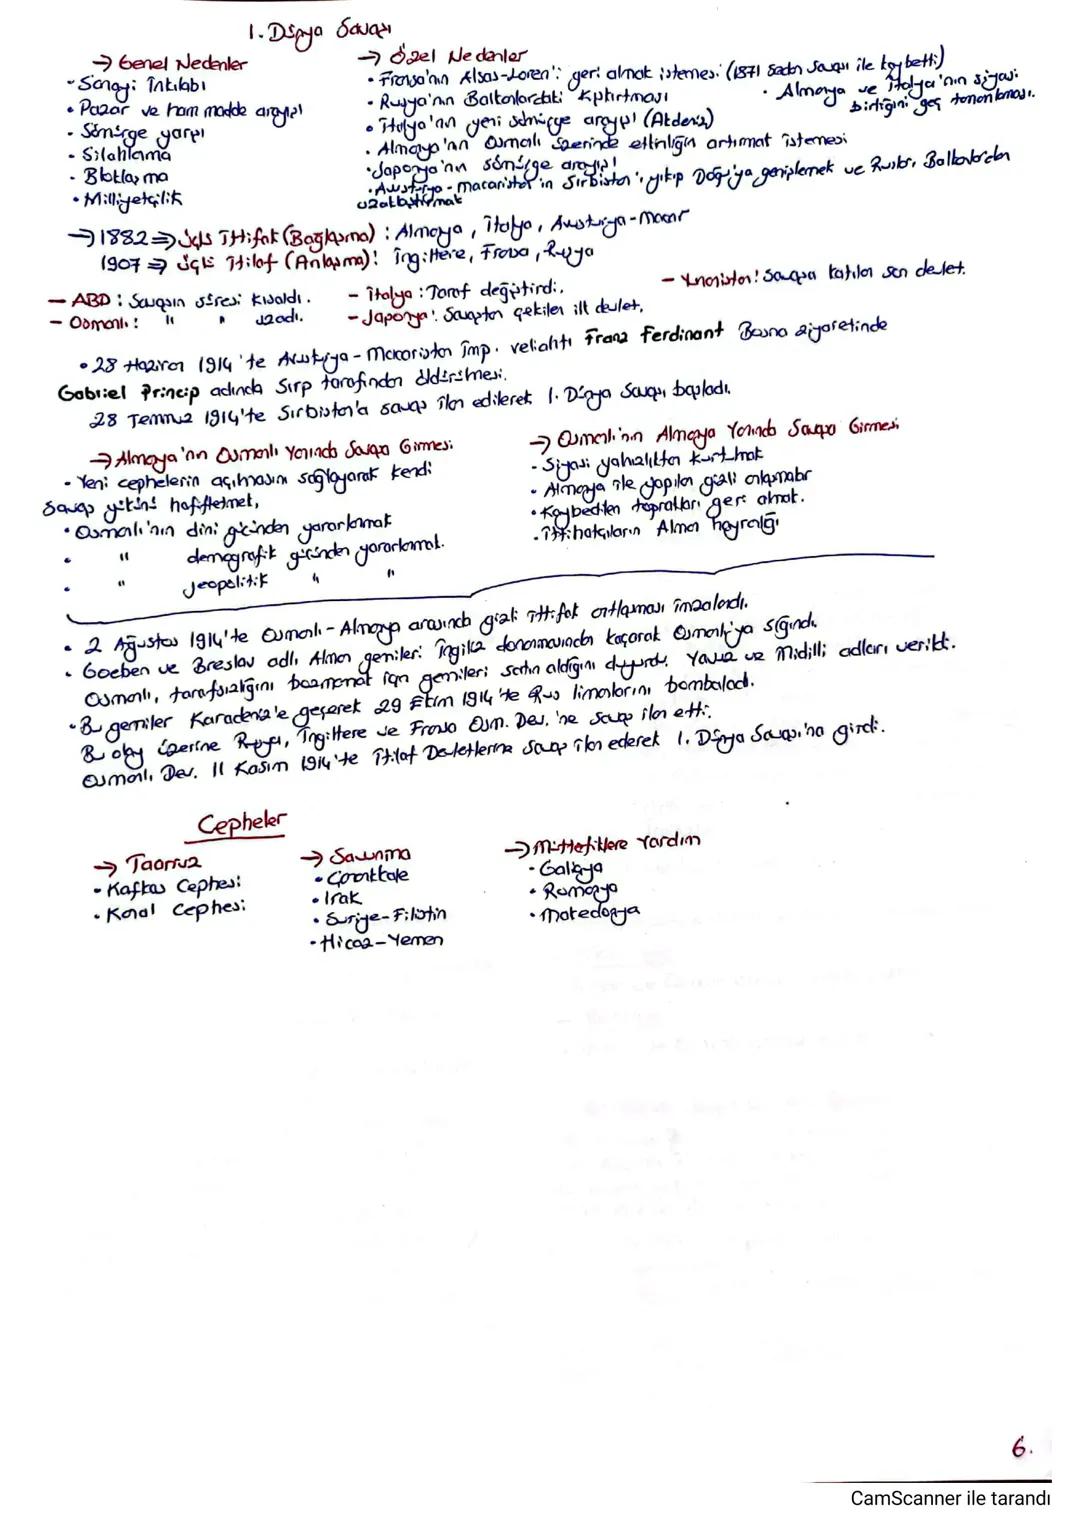 1. Dünya Savaşı
→ Genel Nedenler
• Sanayi İnkılabı
• Pazar ve ham madde arayışı
• Sömürge yarışı
• Silahlanma
• Bloklaşma
• Milliyetçilik
→ Özel Nedenler
• Fransa'nın Alsas-Loren'i geri almak istemesi (1871 Sedan Savaşı ile kaybetti)
• Rusya'nın Balkanlardaki Kışkırtması
• Almanya ve İtalya'nın siyasi birliğini geç tamamlaması.
• İtalya'nın yeni sömürge arayışı (Akdeniz)
• Almanya'nın Osmanlı üzerinde etkinliğin artırmak istemesi
• Japonya'nın sömürge arayışı
• Avusturya-Macaristan'ın Sırbistan'ı yıkıp Doğu'ya genişlemek ve Rusları Balkanlardan
uzaklaştırmak
→ 1882 ⇒ Üçlü İttifak (Bağlaşma) : Almanya, İtalya, Avusturya-Macar
1907 ⇒ Üçlü İtilaf (Anlaşma) : İngiltere, Fransa, Rusya
- ABD : Savaşın süresi kısaldı.
- İtalya : Taraf değiştirdi.
- Yunanistan : Savaşa katılan son devlet.
- Osmanlı : " " uzadı.
- Japonya : Savaştan çekilen ilk devlet.
• 28 Haziran 1914'te Avusturya-Macaristan İmp. veliahtı Franz Ferdinant Bosna ziyaretinde
Gabriel Princip adında Sırp tarafından öldürülmesi.
28 Temmuz 1914'te Sırbistan'a savaş ilan edilerek 1. Dünya Savaşı başladı.
→ Almanya'nın Osmanlı Yanında Savaşa Girmesi
• Yeni cephelerin açılmasın sağlayarak kendi
savaş yükünü hafifletmek,
• Osmanlı'nın dini gücünden yararlanmak
• " demografik gücünden yararlanmak.
• " jeopolitik " "
→ Osmanlı'nın Almanya Yanında Savaşa Girmesi
• Siyasi yalnızlıktan kurtulmak
• Almanya ile yapılan gizli anlaşmalar
• Kaybedilen toprakları geri almak.
• İttihatçıların Alman hayranlığı
• 2 Ağustos 1914'te Osmanlı-Almanya arasında gizli ittifak antlaşması imzalandı.
• Goeben ve Breslav adlı Alman gemileri İngiliz donanmasından kaçarak Osmanlı'ya sığındı.
Osmanlı, tarafsızlığını bozmamak için gemileri satın aldığını duyurdu. Yavuz ve Midilli adları verildi.
• Bu gemiler Karadeniz'e geçerek 29 Ekim 1914'te Rus limanlarını bombaladı.
Bu olay üzerine Rusya, İngiltere ve Fransa Osm. Dev.'ne savaş ilan etti.
Osmanlı Dev. 11 Kasım 1914'te İtilaf Devletlerine savaş ilan ederek 1. Dünya Savaşı'na girdi.
Cepheler
→ Taarruz
• Kafkas Cephesi
• Kanal Cephesi
→ Savunma
• Çanakkale
• Irak
• Suriye-Filistin
• Hicaz-Yemen
→ Müttefiklere Yardım
• Galiçya
• Romanya
• Makedonya
6.
CamScanner ile tarandı